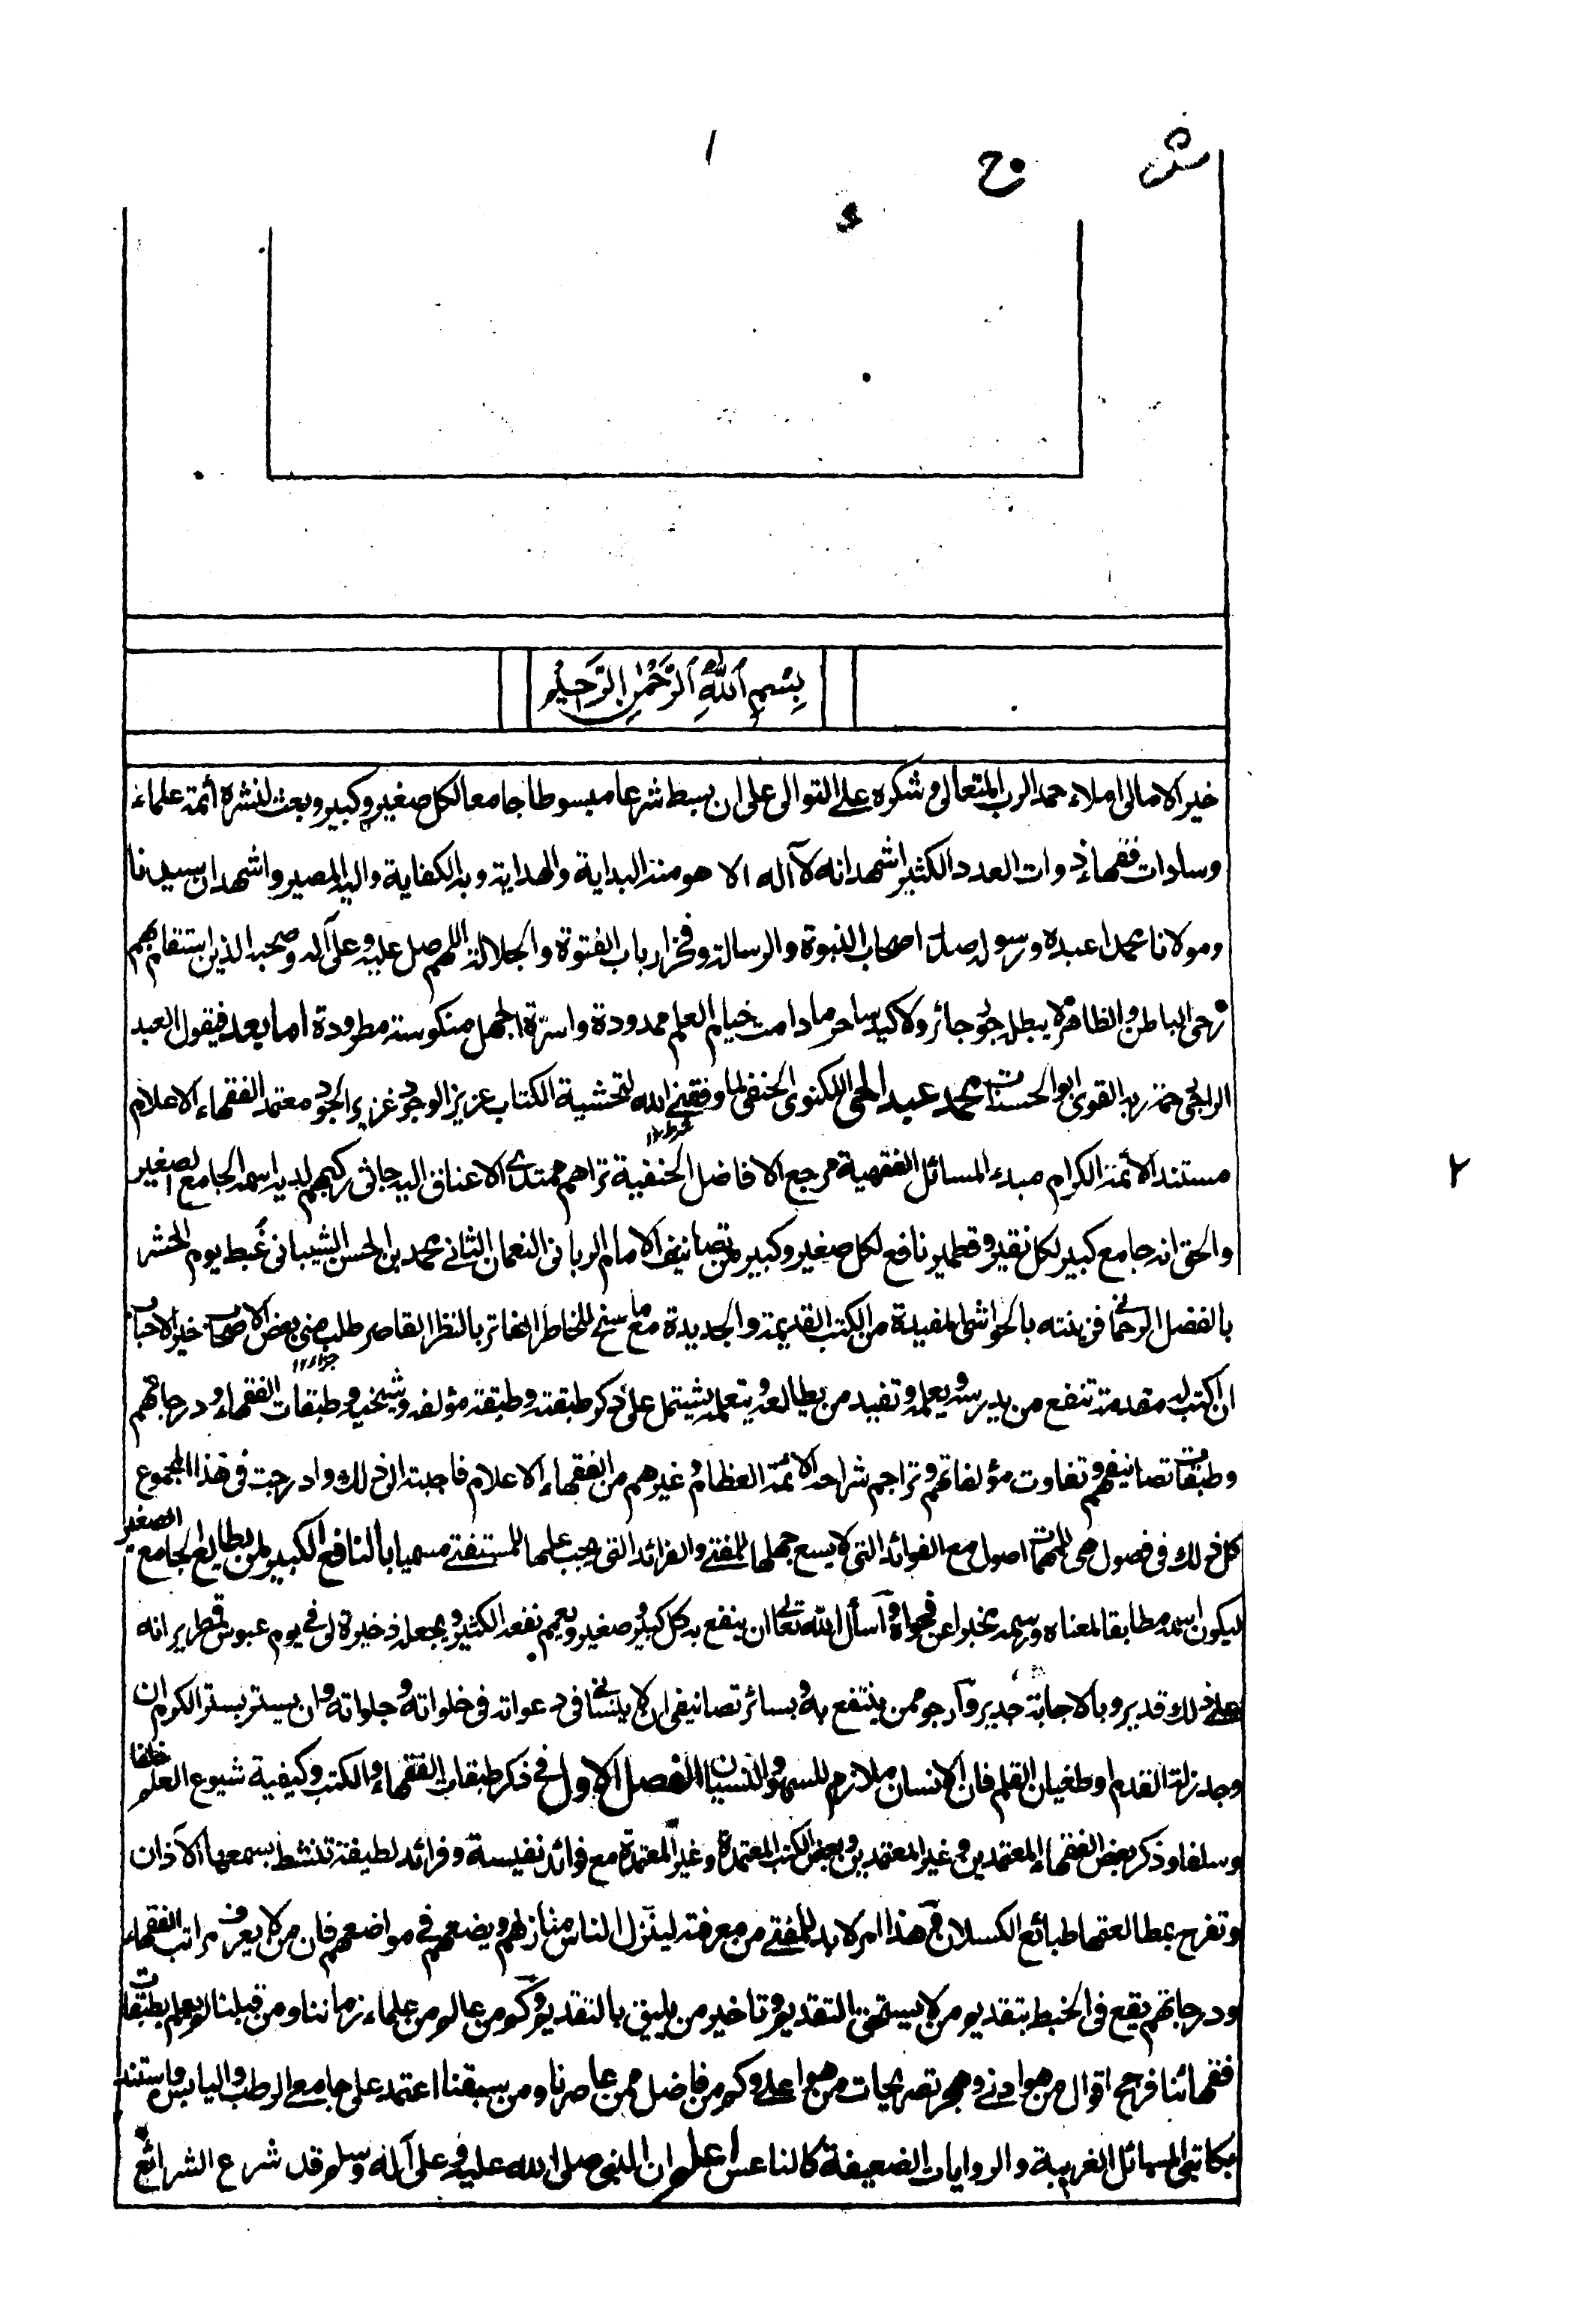 ش ح ١
بِسْمِ ٱللَّهِ ٱلرَّحْمٰنِ الرَّحِيْمِ
خير الامالى املاء حمد الرب المتعالى وشكره على التوالى على ان بسط شرعا مبسوطا جامعا لكل صغير وكبير وبعث لنشره أئمة علماء
وسادات فقهاء ذوات العدد الكثير اشهد انه لا آله الا هو منه البداية والهداية وبه الكفاية واليه المصير واشهد ان سيدنا
ومولانا محمدا عبده ورسوله صدر اصحاب النبوة والرسالة وفخر ارباب الفتوة والجلالة اللهم صل عليه وعلى آله وصحبه الذين استقام بهم
رحى الباطن والظاهر لا يبطله جور جائر ولا كيد ساحر ما دامت خيام العلم ممدودة واسترة الجهل منكوسة مطرودة اما بعد فيقول العبد
الراجى رحمة ربه القوى ابو الحسنات محمد عبد الحى اللكنوى الحنفى لما وفقنى الله لتحشية الكتاب عزيز الوجود غزير الجود معتمد الفقهاء الاعلام
شرط ١٢
مستند الأئمة الكرام مبدء المسائل الفقهية مرجع الافاضل الحنفية تراهم ممتدى الاعناق اليه جاثى ركبهم لديه اسمه الجامع الصغير
٢
والحق انه جامع كبير لكل نقير وقطمير نافع لكل صغير وكبير من تصانيف الامام الربانى النعمان الثانى محمد بن الحسن الشيبانى غُبط يوم الحشر
بالفضل الرحمانى فزينته بالحواشى المفيدة من الكتب القديمة والجديدة مع ما سنح للخاطر الفاتر بالنظر القاصر طلب منى بعض الاصحاب خير الاحباب
جزاء ١٢
ان اكتب له مقدمة تنفع من يدرسه ويعلمه وتفيد من يطالعه ويتعلمه يشتمل على ذكر طبقته وطبقة مؤلفه وشيخيه وطبقات الفقهاء ودرجاتهم
وطبقات تصانيفهم وتفاوت مؤلفاتهم وتراجم شراحه الائمة العظام وغيرهم من الفقهاء الاعلام فاجبته الى ذلك وادرجت فى هذا المجموع
كل ذلك فى فصول هى للمهمات اصول مع الفوائد التى لا يسع جهلها للمفتى والفرائد التى يجب علمها للمستفتى مسميا بالنافع الكبير لمن يطالع الجامع الصغير
ليكون اسمه مطابقا لمعناه ورسمه مخبرا عن فحواه وآسأل الله تعالى ان ينفع به كل كبير وصغير ويعمم نفعه الكثير ويجعله ذخيرة لى فى يوم عبوس قمطرير انه
على ذلك قدير وبالاجابة جدير وآرجو ممن ينتفع به وبسائر تصانيفى ان لا ينسانى فى دعواته فى خلواته وجلواته وان يستر بستر الكرم ان
وجد زلة القدم او طغيان القلم فان الانسان ملازم للسهو والنسيان الفصل الاول فى ذكر طبقات الفقهاء والكتب وكيفية شيوع العلم خلفا
وسلفا وذكر بعض الفقهاء المعتمدين وغير المعتمدين وبعض الكتب المعتمدة وغير المعتمدة مع فوائد نفيسة وفرائد لطيفة تنشط بسمعها الآذان
وتفرح بمطالعتها طبائع الكسلان وهذا امر لا بد للمفتى من معرفته لينزل الناس منازلهم ويضعهم فى مواضعهم فان من لا يعرف مراتب الفقهاء
ودرجاتهم يقع فى الخبط بتقديم من لا يستحق التقديم وتاخير من يليق بالتقديم وكم من عالم من علماء زماننا ومن قبلنا لم يعلم بطبقات
فقهائنا فرجح اقوال من هو ادنى وهجر تصريحات من هو اعلى وكم من فاضل ممن عاصرنا ومن سبقنا اعتمد على جامعى الرطب واليابس واستند
بكاتبى المسائل الغريبة والروايات الضعيفة كالناعس اعلم ان النبى صلى الله عليه وعلى آله وسلم قد شرع الشرائع